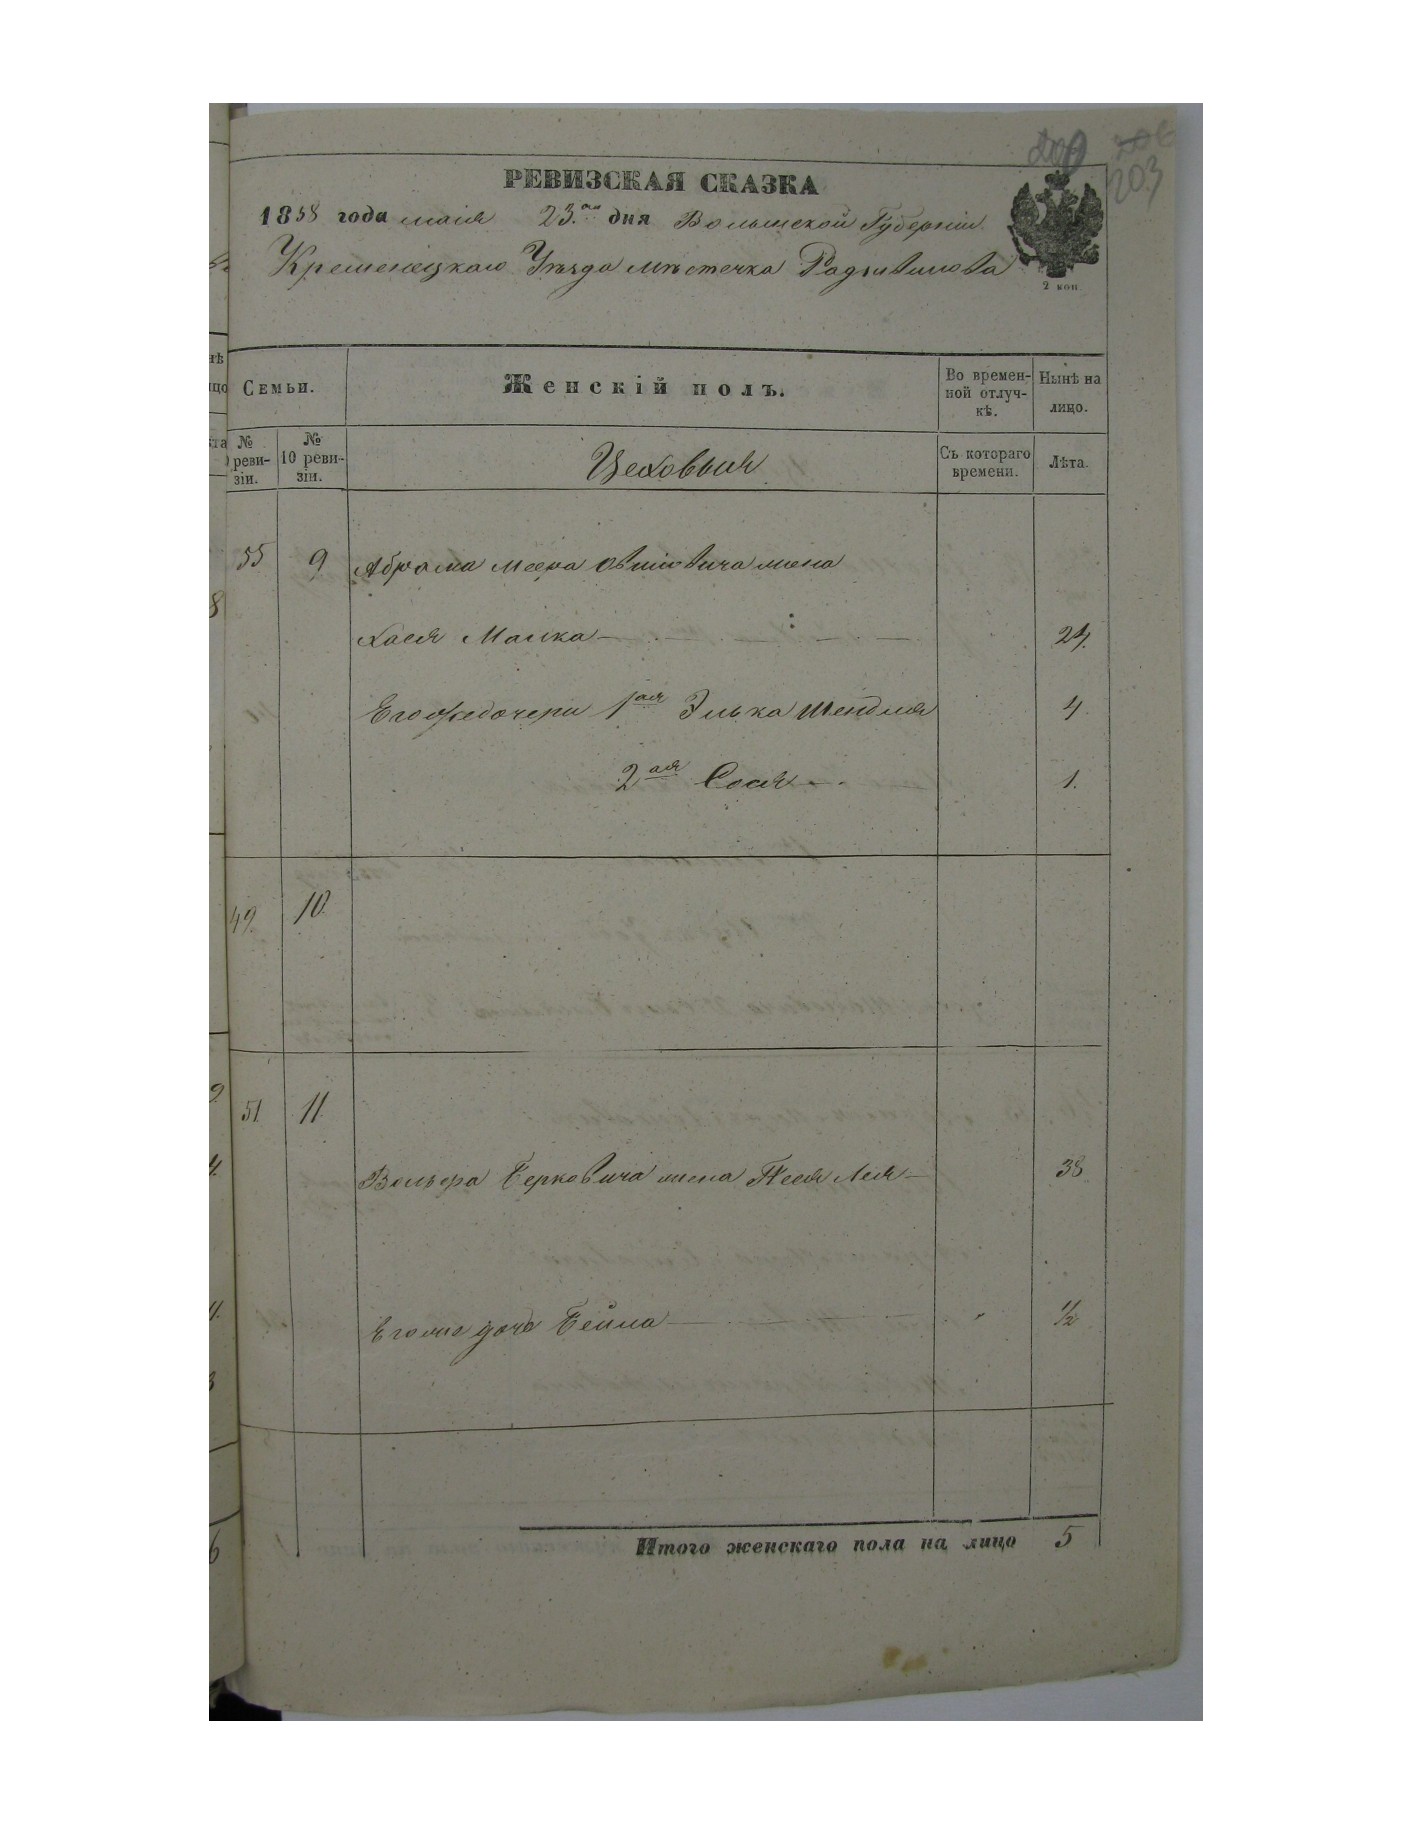 203
РЕВИЗСКАЯ СКАЗКА
1858 года маія 23.го дня Волынской Губерніи
Кременецкаго Уѣзда мѣстечка Радзивилова
2 коп.
Семьи.
Женскій полъ.
Во времен-
ной отлуч-
кѣ.
Нынѣ на
лицо.
№
реви-
зіи.
№
10 реви-
зіи.
Цеховыя
Съ котораго
времени.
Лѣта.
55 9 Абрама Меера жена
Хася Малка 24.
Его же дочери 1ая Элька Шендля 4.
2ая Сося 1.
49. 10.
51 11.
Вольфа Берковича жена Песя Лея 38
Его же дочь Бейла 1/2
Итого женскаго пола на лицо 5